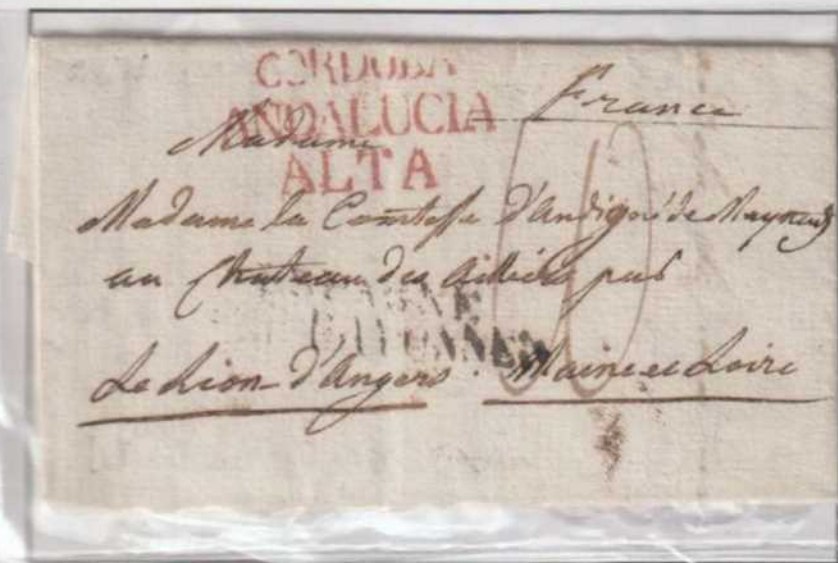 CORDOBA
ANDALUCIA
ALTA
France
Madame
Madame la Comtesse d'Andigné de
au Chateau des par
Le Lion d'Angers. Maine et Loire